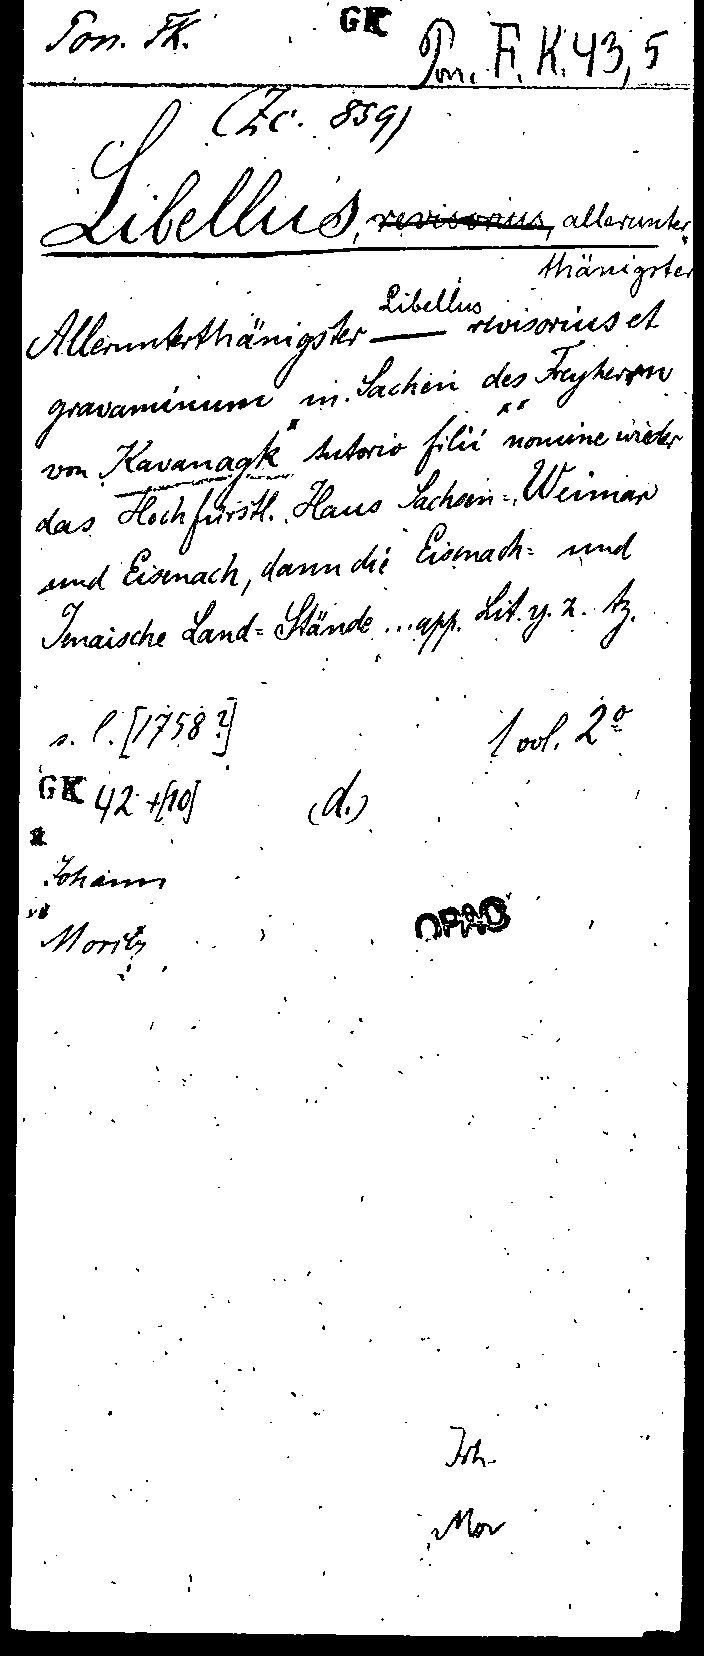 Pon. Fk. GK Pon. F. K. 43, 5
(Zc. 859)
Libellus, revisorius, allerunter-
thänigster
Allerunterthänigster Libellus revisorius et
gravaminum in Sachen des Freyherrn
von Kavanagk tutorio filii nomine wieder
das Hochfürstl. Haus Sachsen-Weimar
und Eisenach, dann die Eisenach- und
Jenaische Land-Stände ... app. Lit. y. z. tz.
s. l. [1758?] 1 vol. 2º
GK 42 +[10] (d.)
Johann
Moritz
OPAC
Joh
Mor